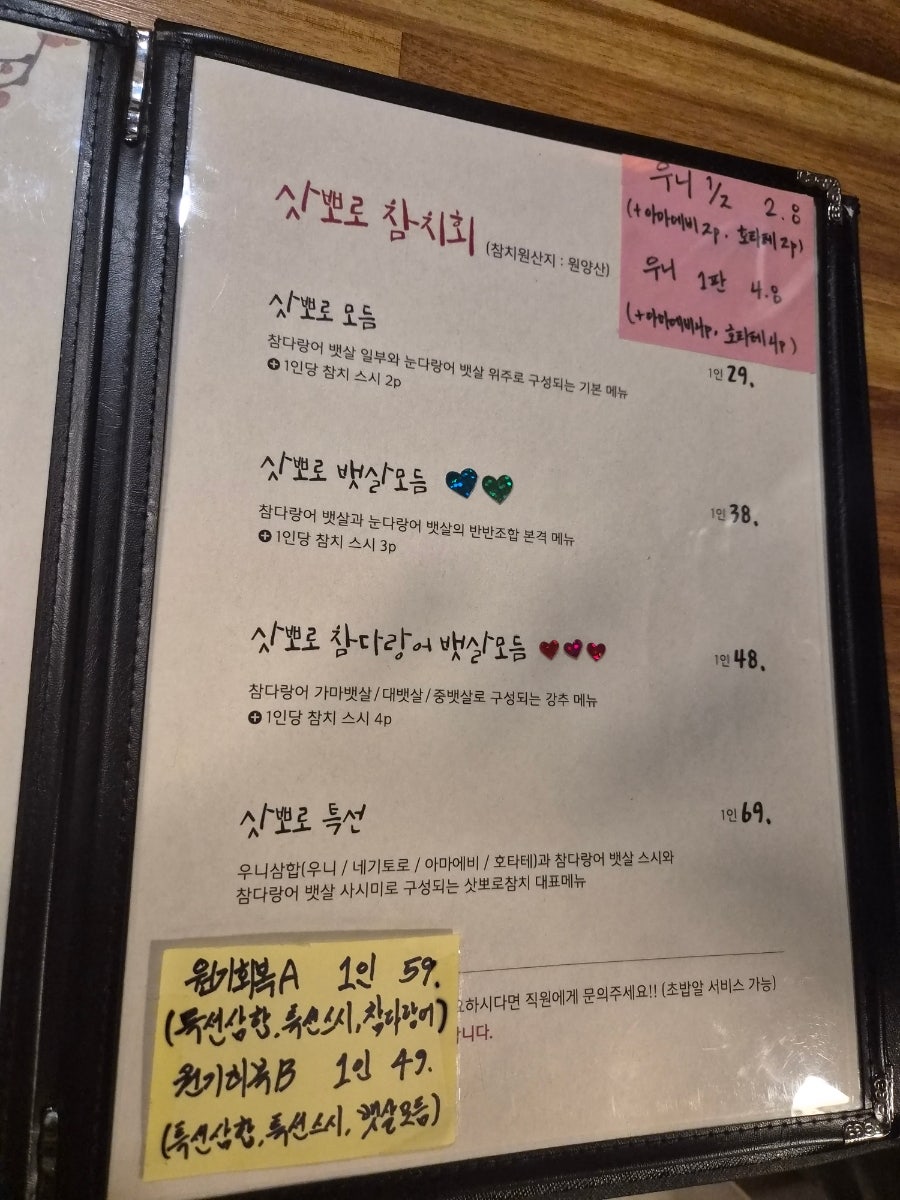 삿뽀로 참치회 (참치원산지 : 원양산)
우니 1/2 2.8
(+아마에비 2p. 호타테 2p)
우니 1판 4.8
(+아마에비 4p, 호타테 4p)
삿뽀로 모듬
참다랑어 뱃살 일부와 눈다랑어 뱃살 위주로 구성되는 기본 메뉴
1인 29.
+ 1인당 참치 스시 2p
삿뽀로 뱃살모듬
참다랑어 뱃살과 눈다랑어 뱃살의 반반조합 본격 메뉴
1인 38.
+ 1인당 참치 스시 3p
삿뽀로 참다랑어 뱃살모듬
1인 48.
참다랑어 가마뱃살 / 대뱃살 / 중뱃살로 구성되는 강추 메뉴
+ 1인당 참치 스시 4p
삿뽀로 특선
1인 69.
우니삼합(우니 / 네기토로 / 아마에비 / 호타테)과 참다랑어 뱃살 스시와
참다랑어 뱃살 사시미로 구성되는 삿뽀로참치 대표메뉴
하시다면 직원에게 문의주세요!! (초밥알 서비스 가능)
니다.
원기회복A 1인 59.
(특선삼합, 특선스시, 참다랑어)
원기회복B 1인 49.
(특선삼합, 특선스시, 뱃살모듬)